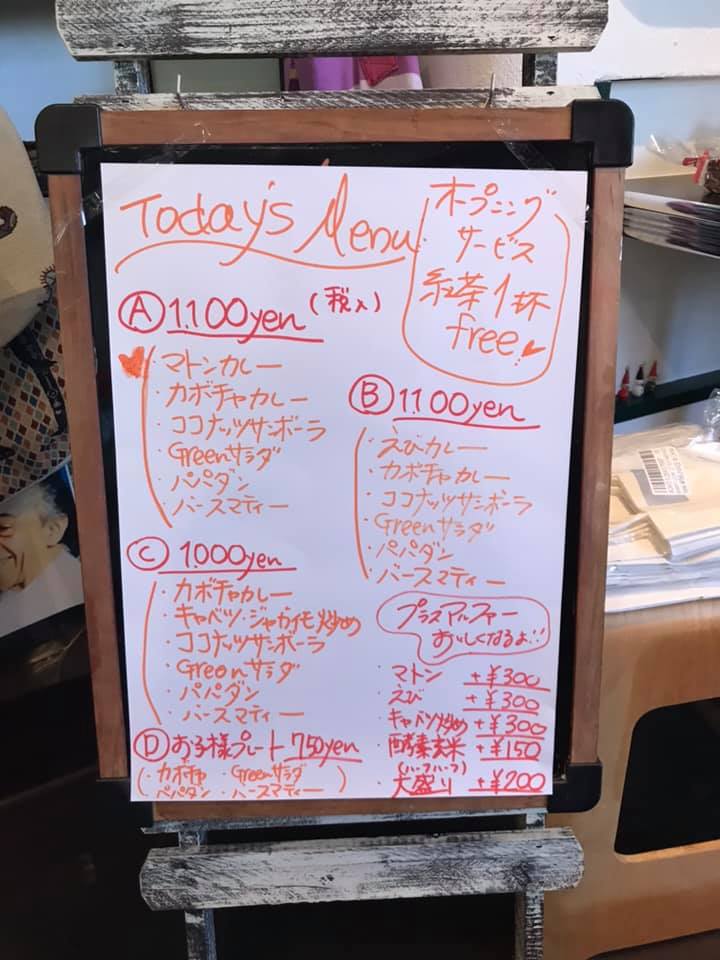 Today's Menu
オープニング
サービス
紅茶1杯
free!
Ⓐ 1.100yen (税入)
・マトンカレー
・カボチャカレー
・ココナッツサンボーラ
・Greenサラダ
・パパダン
・バースマティー
Ⓑ 1.100yen
・えびカレー
・カボチャカレー
・ココナッツサンボーラ
・Greenサラダ
・パパダン
・バースマティー
Ⓒ 1.000yen
・カボチャカレー
・キャベツ・ジャガイモ炒め
・ココナッツサンボーラ
・Greenサラダ
・パパダン
・バースマティー
Ⓓ お子様プレート 750yen
(・カボチャ ・Greenサラダ
・パパダン ・バースマティー)
プラスアルファー
おいしくなるよ!!
・マトン +¥300
・えび +¥300
・キャベツ炒め +¥300
・酵素玄米 +¥150
(ハーフハーフ)
・大盛り +¥200